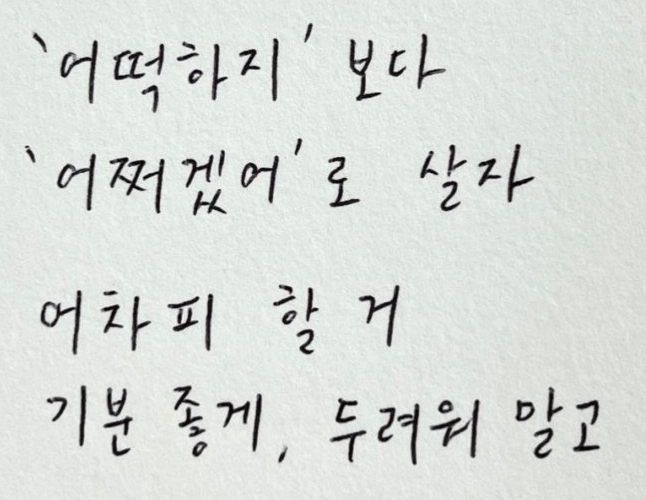 '어떡하지' 보다
'어쩌겠어'로 살자
어차피 할 거
기분 좋게, 두려워 말고